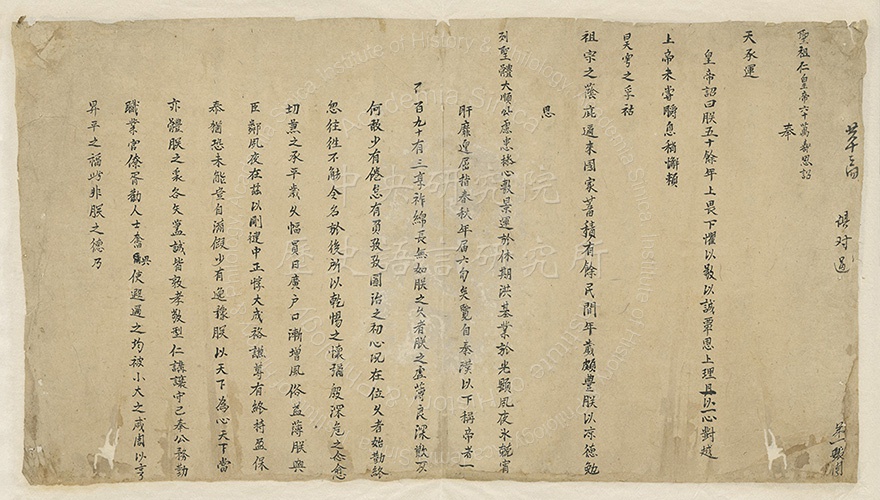 聖祖仁皇帝六十萬壽恩詔
奉
天承運
皇帝詔曰朕五十餘年上畏下懼以敬以誠覃思上理且以一心對越
上帝未嘗瞬息稍懈賴
昊穹之孚祐
祖宗之蔭庇邇來國家蓄積有餘民間年歲頗豐朕以涼德勉
思
列聖體大順以慮患操心敷景運於休期洪基業於光顯夙夜永兢宵
旰靡遑屈指春秋年屆六旬矣覽自秦漢以下稱帝者一
百九十有三享祚綿長無如朕之久者朕之虛薄良深歉仄
何敢少有倦怠有負孜孜圖治之初心况在位久者始勤終
忽往往不能全名於後所以乾惕之懷彌殷深危之念愈
切兼之承平歲久幅員日廣户口漸增風俗益薄朕與
臣鄰夙夜在兹以剛健中正惇大成裕謙尊有終持盈保
泰猶恐未能豈自滿假少有逸豫朕以天下為心天下當
亦體朕之衷各矢藎誠皆敦孝敬型仁講讓守己奉公務勤
職業官僚胥勸人士奮興使遐邇之均被小大之咸周以享
昇平之福此非朕之德乃
中央研究院
歷史語言研究所